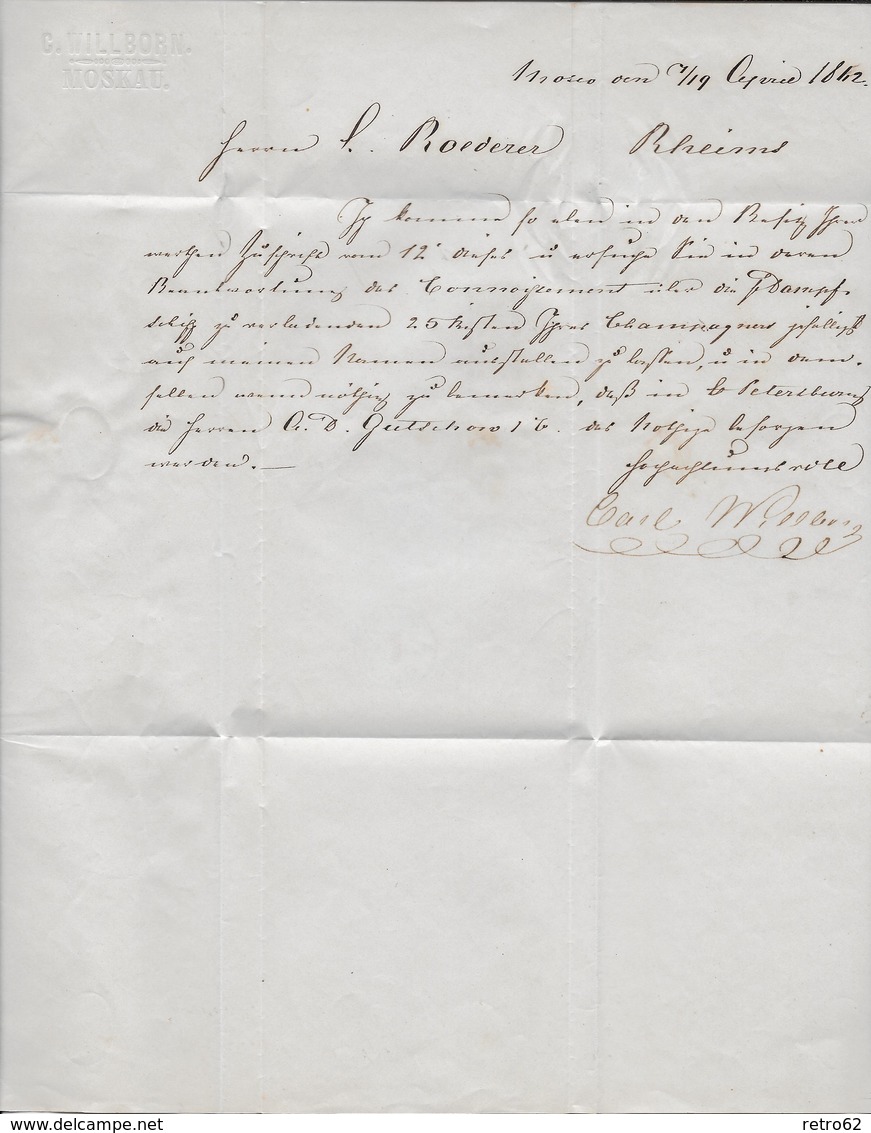 C. WILLBORN.
MOSKAU.
Mosco den 7/19 April 1862.
Herrn L. Roederer Rheims
Ich komme so eben in den Besitz Ihrer
werthen Zuschrift vom 12 dieses u ersuche Sie in deren
Beantwortung das Connoissement über die p Dampf-
schiff zu verladenden 25 Kisten Ihres Champagners gefälligst
auf meinen Namen ausstellen zu lassen, u in dem-
selben wenn nöthig zu bemerken, daß in St Petersburg
die Herren A. D. Gutschow & C. das Nöthige besorgen
werden. — Hochachtungsvoll
Carl Willborn
delcampe.net
retro62